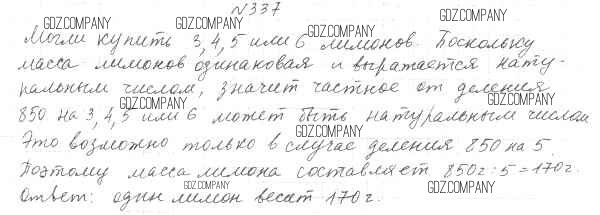 №337
GDZ.COMPANY GDZ.COMPANY
GDZ.COMPANY GDZ.COMPANY
Могли купить 3, 4, 5 или 6 лимонов. Поскольку
масса лимонов одинаковая и выражается нату-
GDZ.COMPANY
ральным числом, значит частное от деления
GDZ.COMPANY GDZ.COMPANY
850 на 3, 4, 5 или 6 может быть натуральным числом
GDZ.COMPANY
Это возможно только в случае деления 850 на 5.
Поэтому масса лимона составляет 850г : 5 = 170г.
GDZ.COMPANY GDZ.COMPANY
Ответ: один лимон весит 170г.